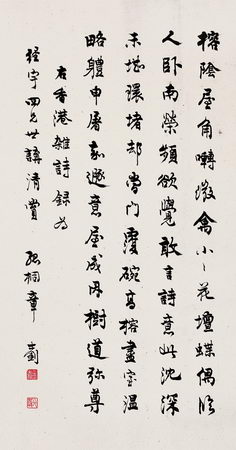 榕陰屋角囀微禽小々花壇蝶偶臨
人臥南榮頻欲覺敢言詩意此沈深
未堪環堵却當門覆碗高榕盡室溫
略體申屠嘉遯意屋成因樹道彌尊
右香港雜詩錄為
經宇四兄世講清賞
孤桐章士釗